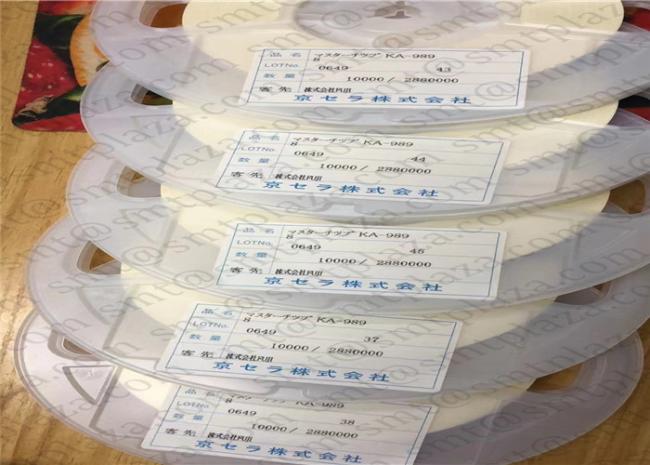 品名 マスターチップ KA-989
8
LOTNo. 0649 43
数量 10000/ 2880000
客先 株式会社
京セラ株式会社
品名 マスターチップ KA-989
8
LOTNo. 0649 44
数量 10000/ 2880000
客先 株式会社
京セラ株式会社
品名 マスターチップ KA-989
8
LOTNo. 0649 45
数量 10000/ 2880000
客先 株式会社
京セラ株式会社
品名 マスターチップ KA-989
8
LOTNo. 0649 37
数量 10000/ 2880000
客先 株式会社
京セラ株式会社
品名 KA-989
8
LOTNo. 0649 38
数量 10000/ 2880000
客先 株式会社
京セラ株式会社
smt@smtplaza.com